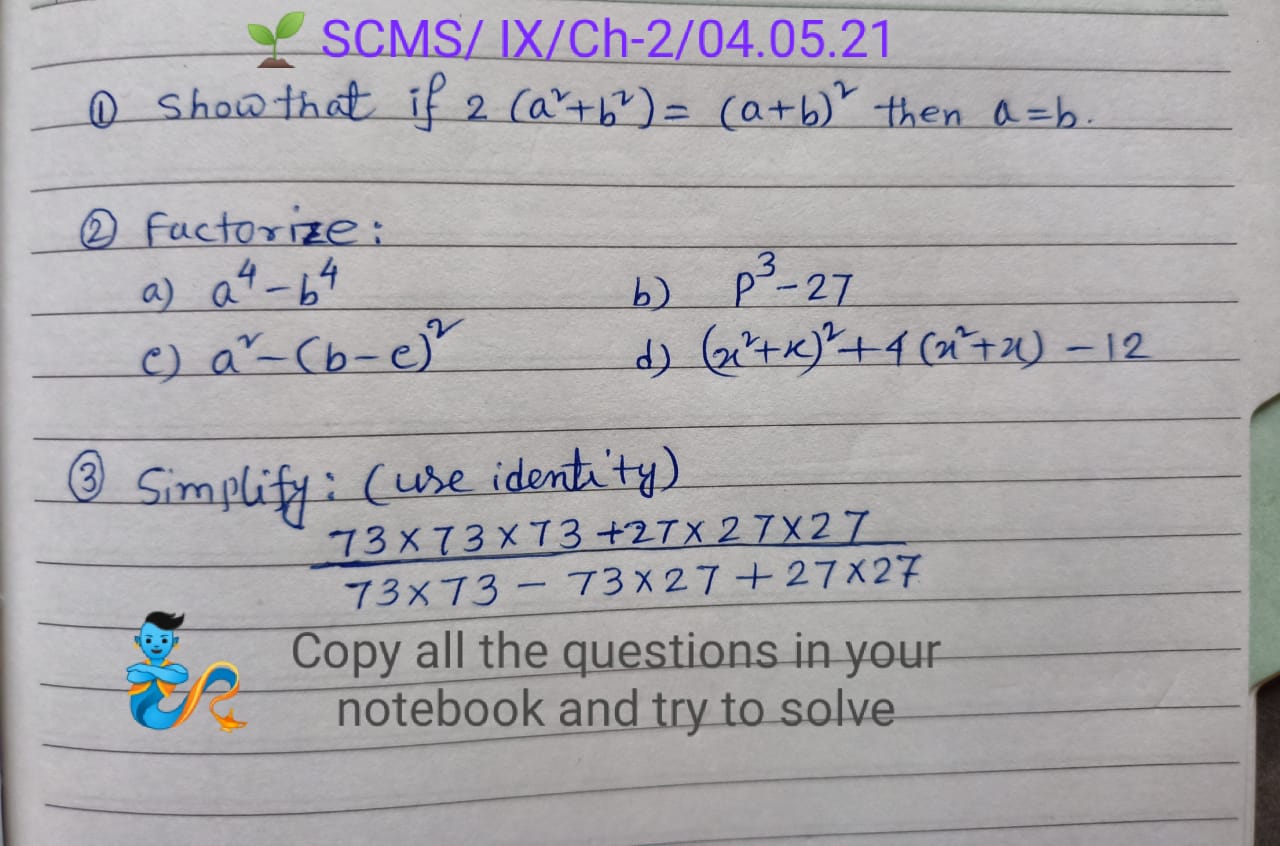 🌱 SCMS/ IX/Ch-2/04.05.21
① Show that if 2 (a²+b²) = (a+b)² then a=b.
② Factorize:
a) a⁴-b⁴ b) p³-27
c) a²-(b-c)² d) (x²+x)²+4(x²+x) -12
③ Simplify: (use identity)
73×73×73+27×27×27
73×73 - 73×27 + 27×27
Copy all the questions in your
notebook and try to solve